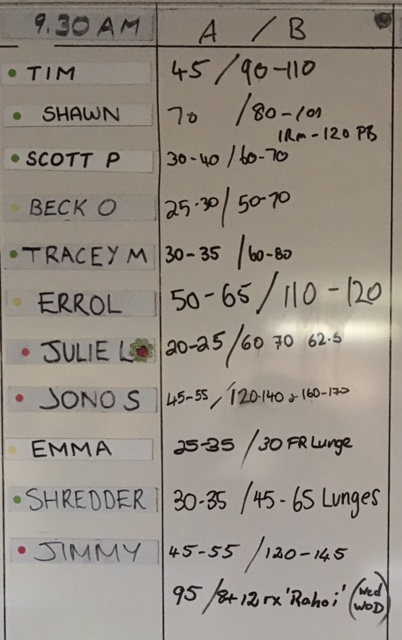 9.30 AM A / B
TIM 45 / 90-110
SHAWN 70 / 80-101
1RM - 120 PB
SCOTT P 30-40 / 60-70
BECK O 25-30 / 50-70
TRACEY M 30-35 / 60-80
ERROL 50-65 / 110-120
JULIE L 20-25 / 60 70 62.5
JONO S 45-55 / 120-140 160-170
EMMA 25-35 / 30 FR Lunge
SHREDDER 30-35 / 45-65 Lunges
JIMMY 45-55 / 120-145
95 / 8+12 rx 'Rahoi' (Wed
WOD)